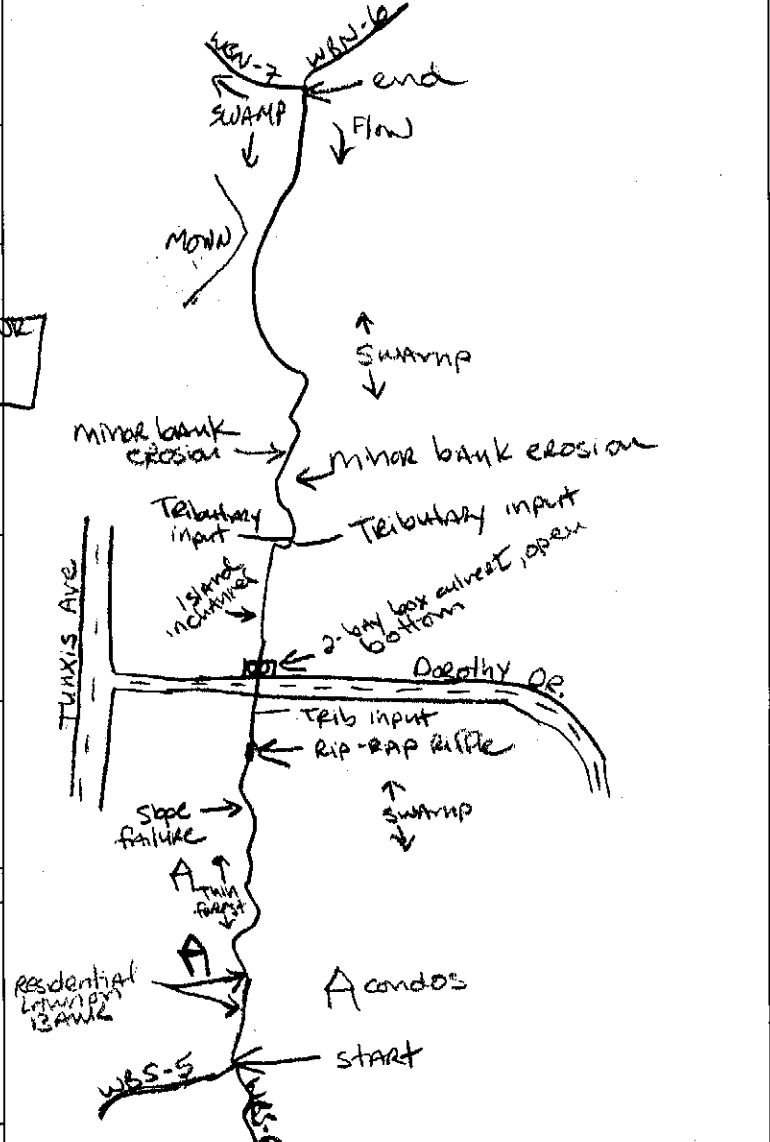 WBN-7
WBN-6
end
SWAMP
Flow
MOWN
SWAMP
Minor bank
erosion
Minor bank erosion
Tributary
input
Tributary input
Island
in channel
2-bay box culvert, open
bottom
Tunxis Ave
Dorothy Dr.
Trib input
Rip-Rap Riffle
Slope
failure
SWAMP
Thin
forest
Residential
Lawn on
BANK
condos
START
WBS-5